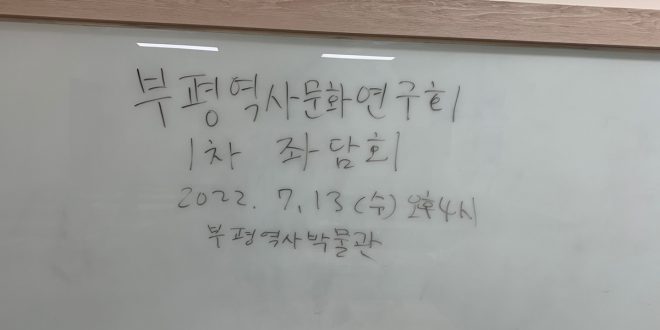 부평역사문화연구회
1차 좌담회
2022. 7. 13 (수) 오후4시
부평역사박물관